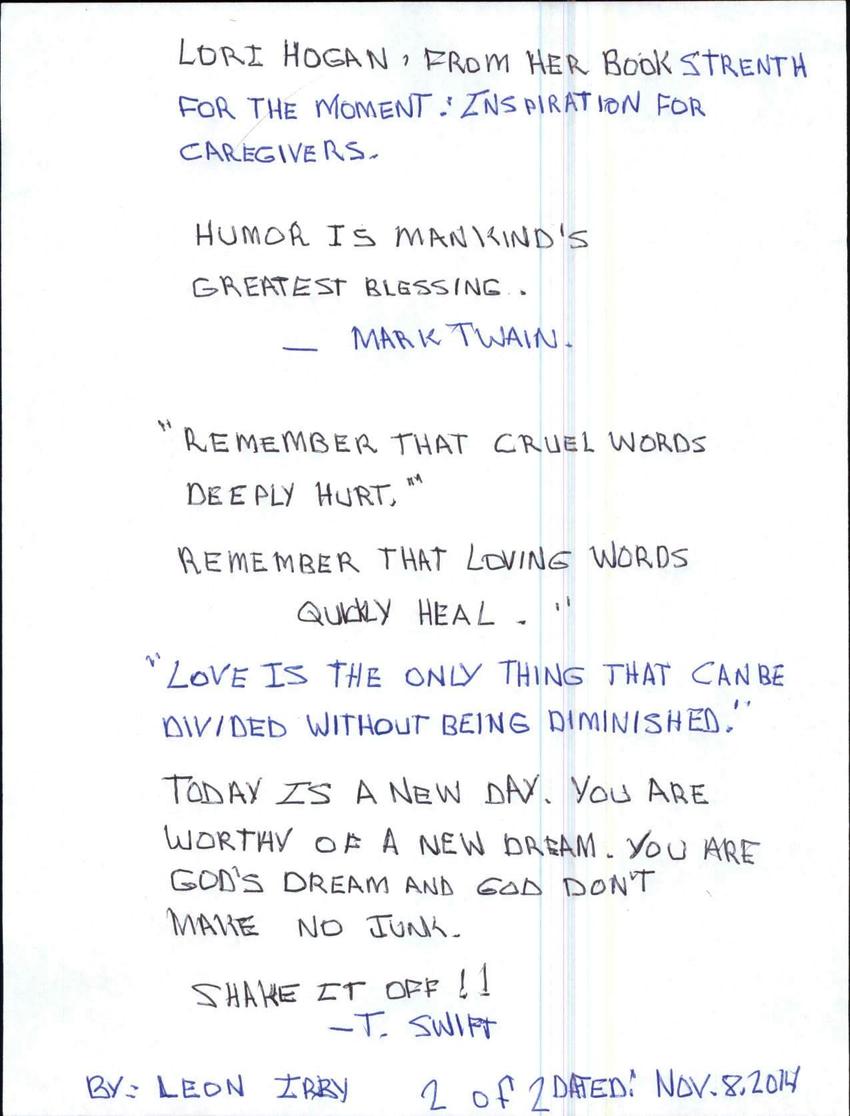 LORI HOGAN, FROM HER BOOK STRENTH
FOR THE MOMENT: INSPIRATION FOR
CAREGIVERS.
HUMOR IS MANKIND'S
GREATEST BLESSING.
— MARK TWAIN.
"REMEMBER THAT CRUEL WORDS
DEEPLY HURT,"
REMEMBER THAT LOVING WORDS
QUICKLY HEAL."
"LOVE IS THE ONLY THING THAT CAN BE
DIVIDED WITHOUT BEING DIMINISHED."
TODAY IS A NEW DAY. YOU ARE
WORTHY OF A NEW DREAM. YOU ARE
GOD'S DREAM AND GOD DON'T
MAKE NO JUNK.
SHAKE IT OFF!!
—T. SWIFT
BY: LEON IRBY 2 of 2 DATED: NOV. 8, 2014